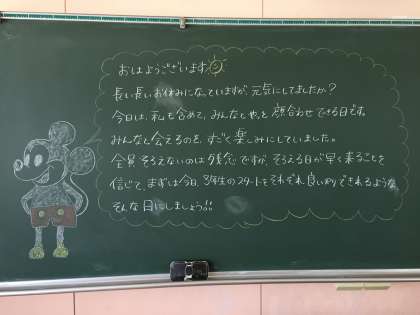 おはようございます
長い長いお休みになっていますが、元気にしてましたか?
今日は、私も含めて、みんなとやっと顔合わせできる日です。
みんなと会えるのを、すごく楽しみにしていました。
全員そろえないのは残念ですが、そろえる日が早く来ることを
信じて、まずは今日、3年生のスタートをそれぞれ良い形できれるような、
そんな日にしましょう!!